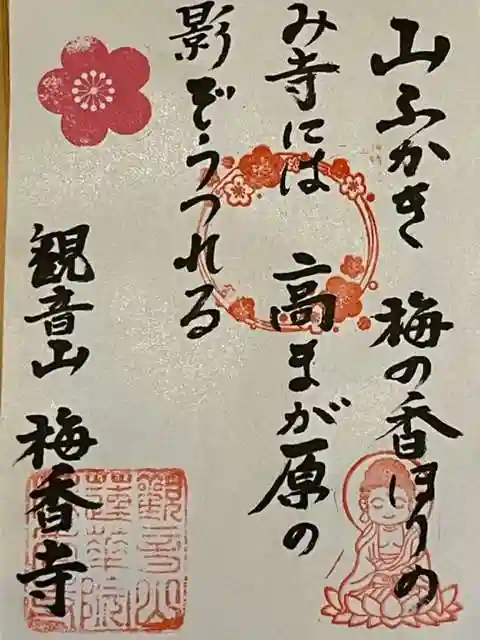 山ふかき 梅の香ほりの
み寺には 高まが原の
影ぞうつれる
観音山 梅香寺
觀音山
蓮華院